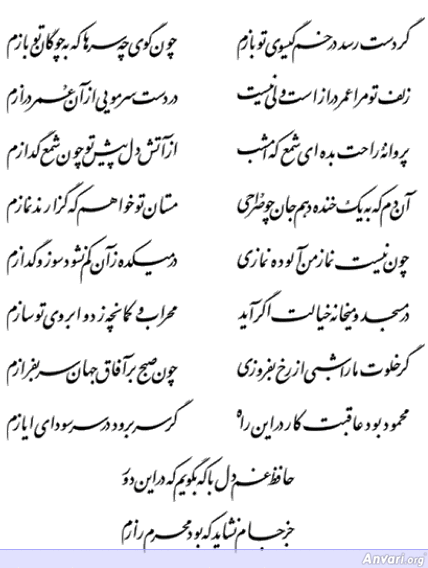 گر دست رسد در خم گیسوی تو بازم چون گوی چه سرها که به چوگان تو بازم
زلف تو مرا عمر دراز است ولی نیست در دست سر مویی از آن عمر درازم
پروانهٔ راحت بده ای شمع که امشب از آتش دل پیش تو چون شمع گدازم
آن دم که به یک خنده دهم جان چو صراحی مستان تو خواهم که گزارند نمازم
چون نیست نماز من آلوده نمازی در میکده زان کم نشود سوز و گدازم
در مسجد و میخانه خیالت اگر آید محراب و کمانچه ز دو ابروی تو سازم
گر خلوت ما را شبی از رخ بفروزی چون صبح بر آفاق جهان سر بفرازم
محمود بود عاقبت کار در این راه گر سر برود در سر سودای ایازم
حافظ غم دل با که بگویم که در این دور
جز جام نشاید که بود محرم رازم
Anvari.org